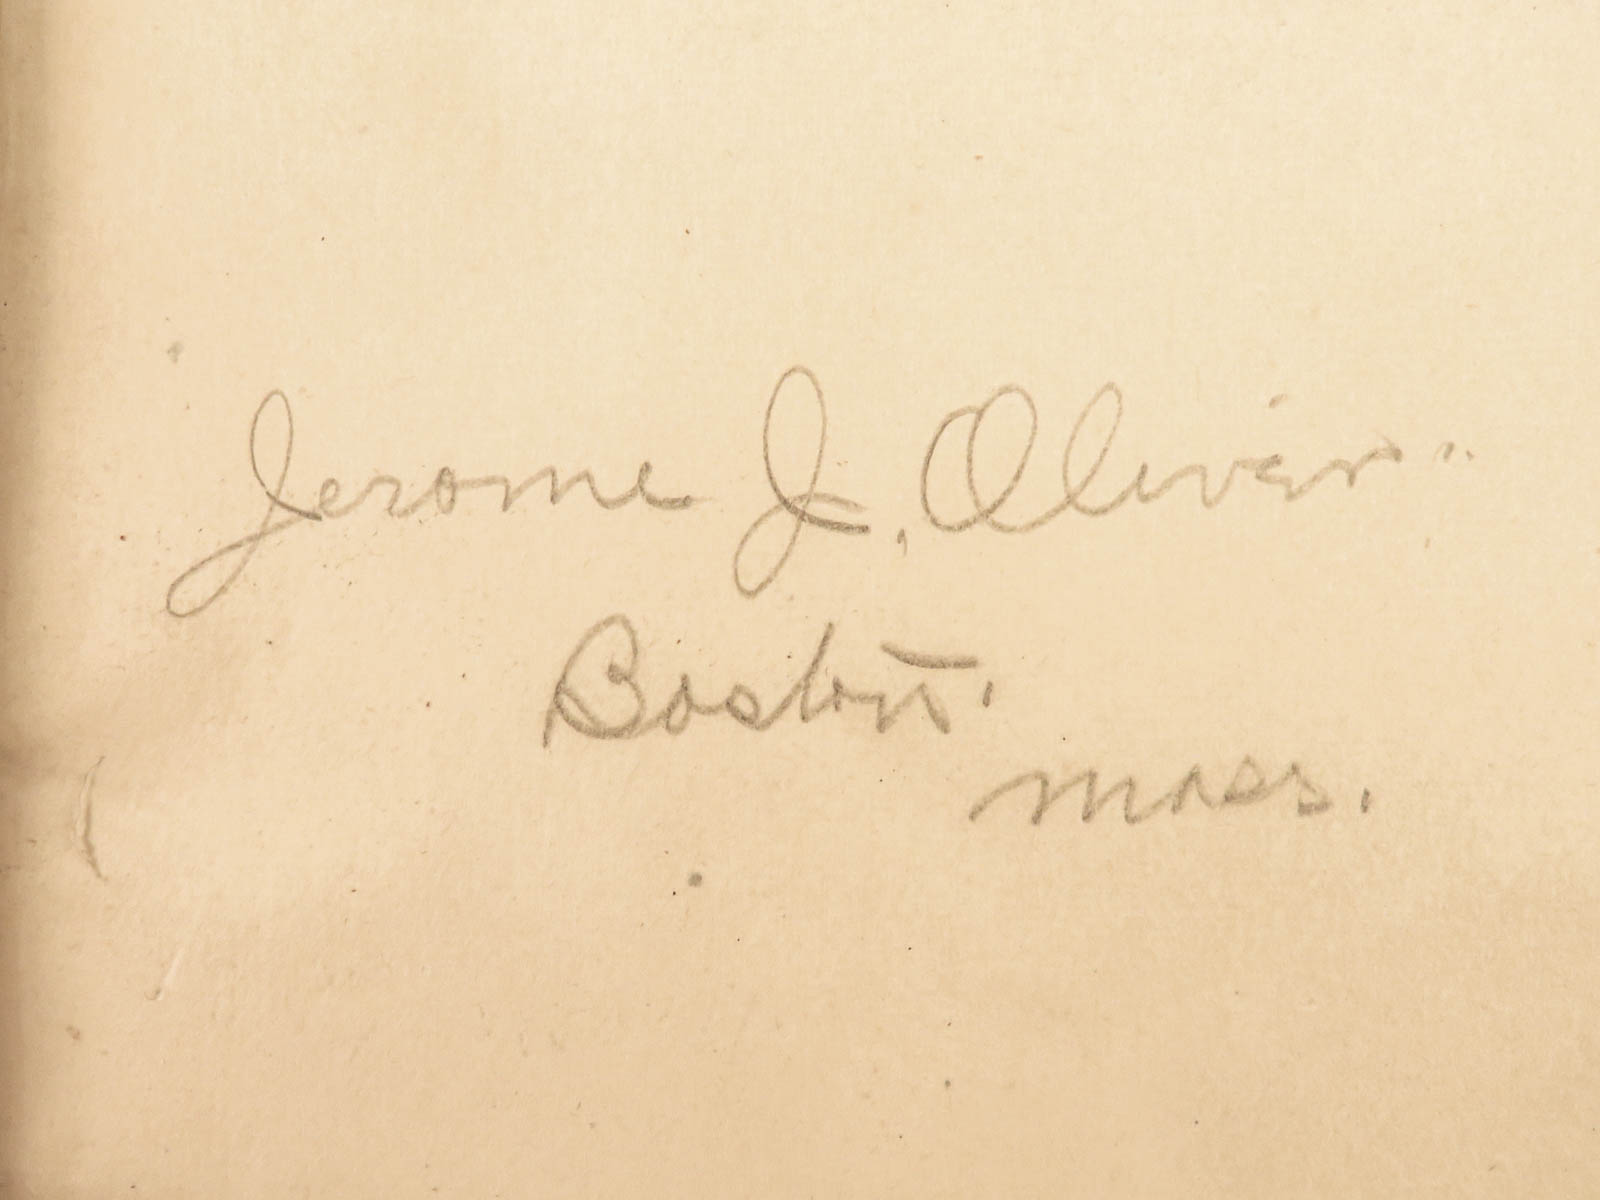 Jerome J. Oliver
Boston.
Mass.